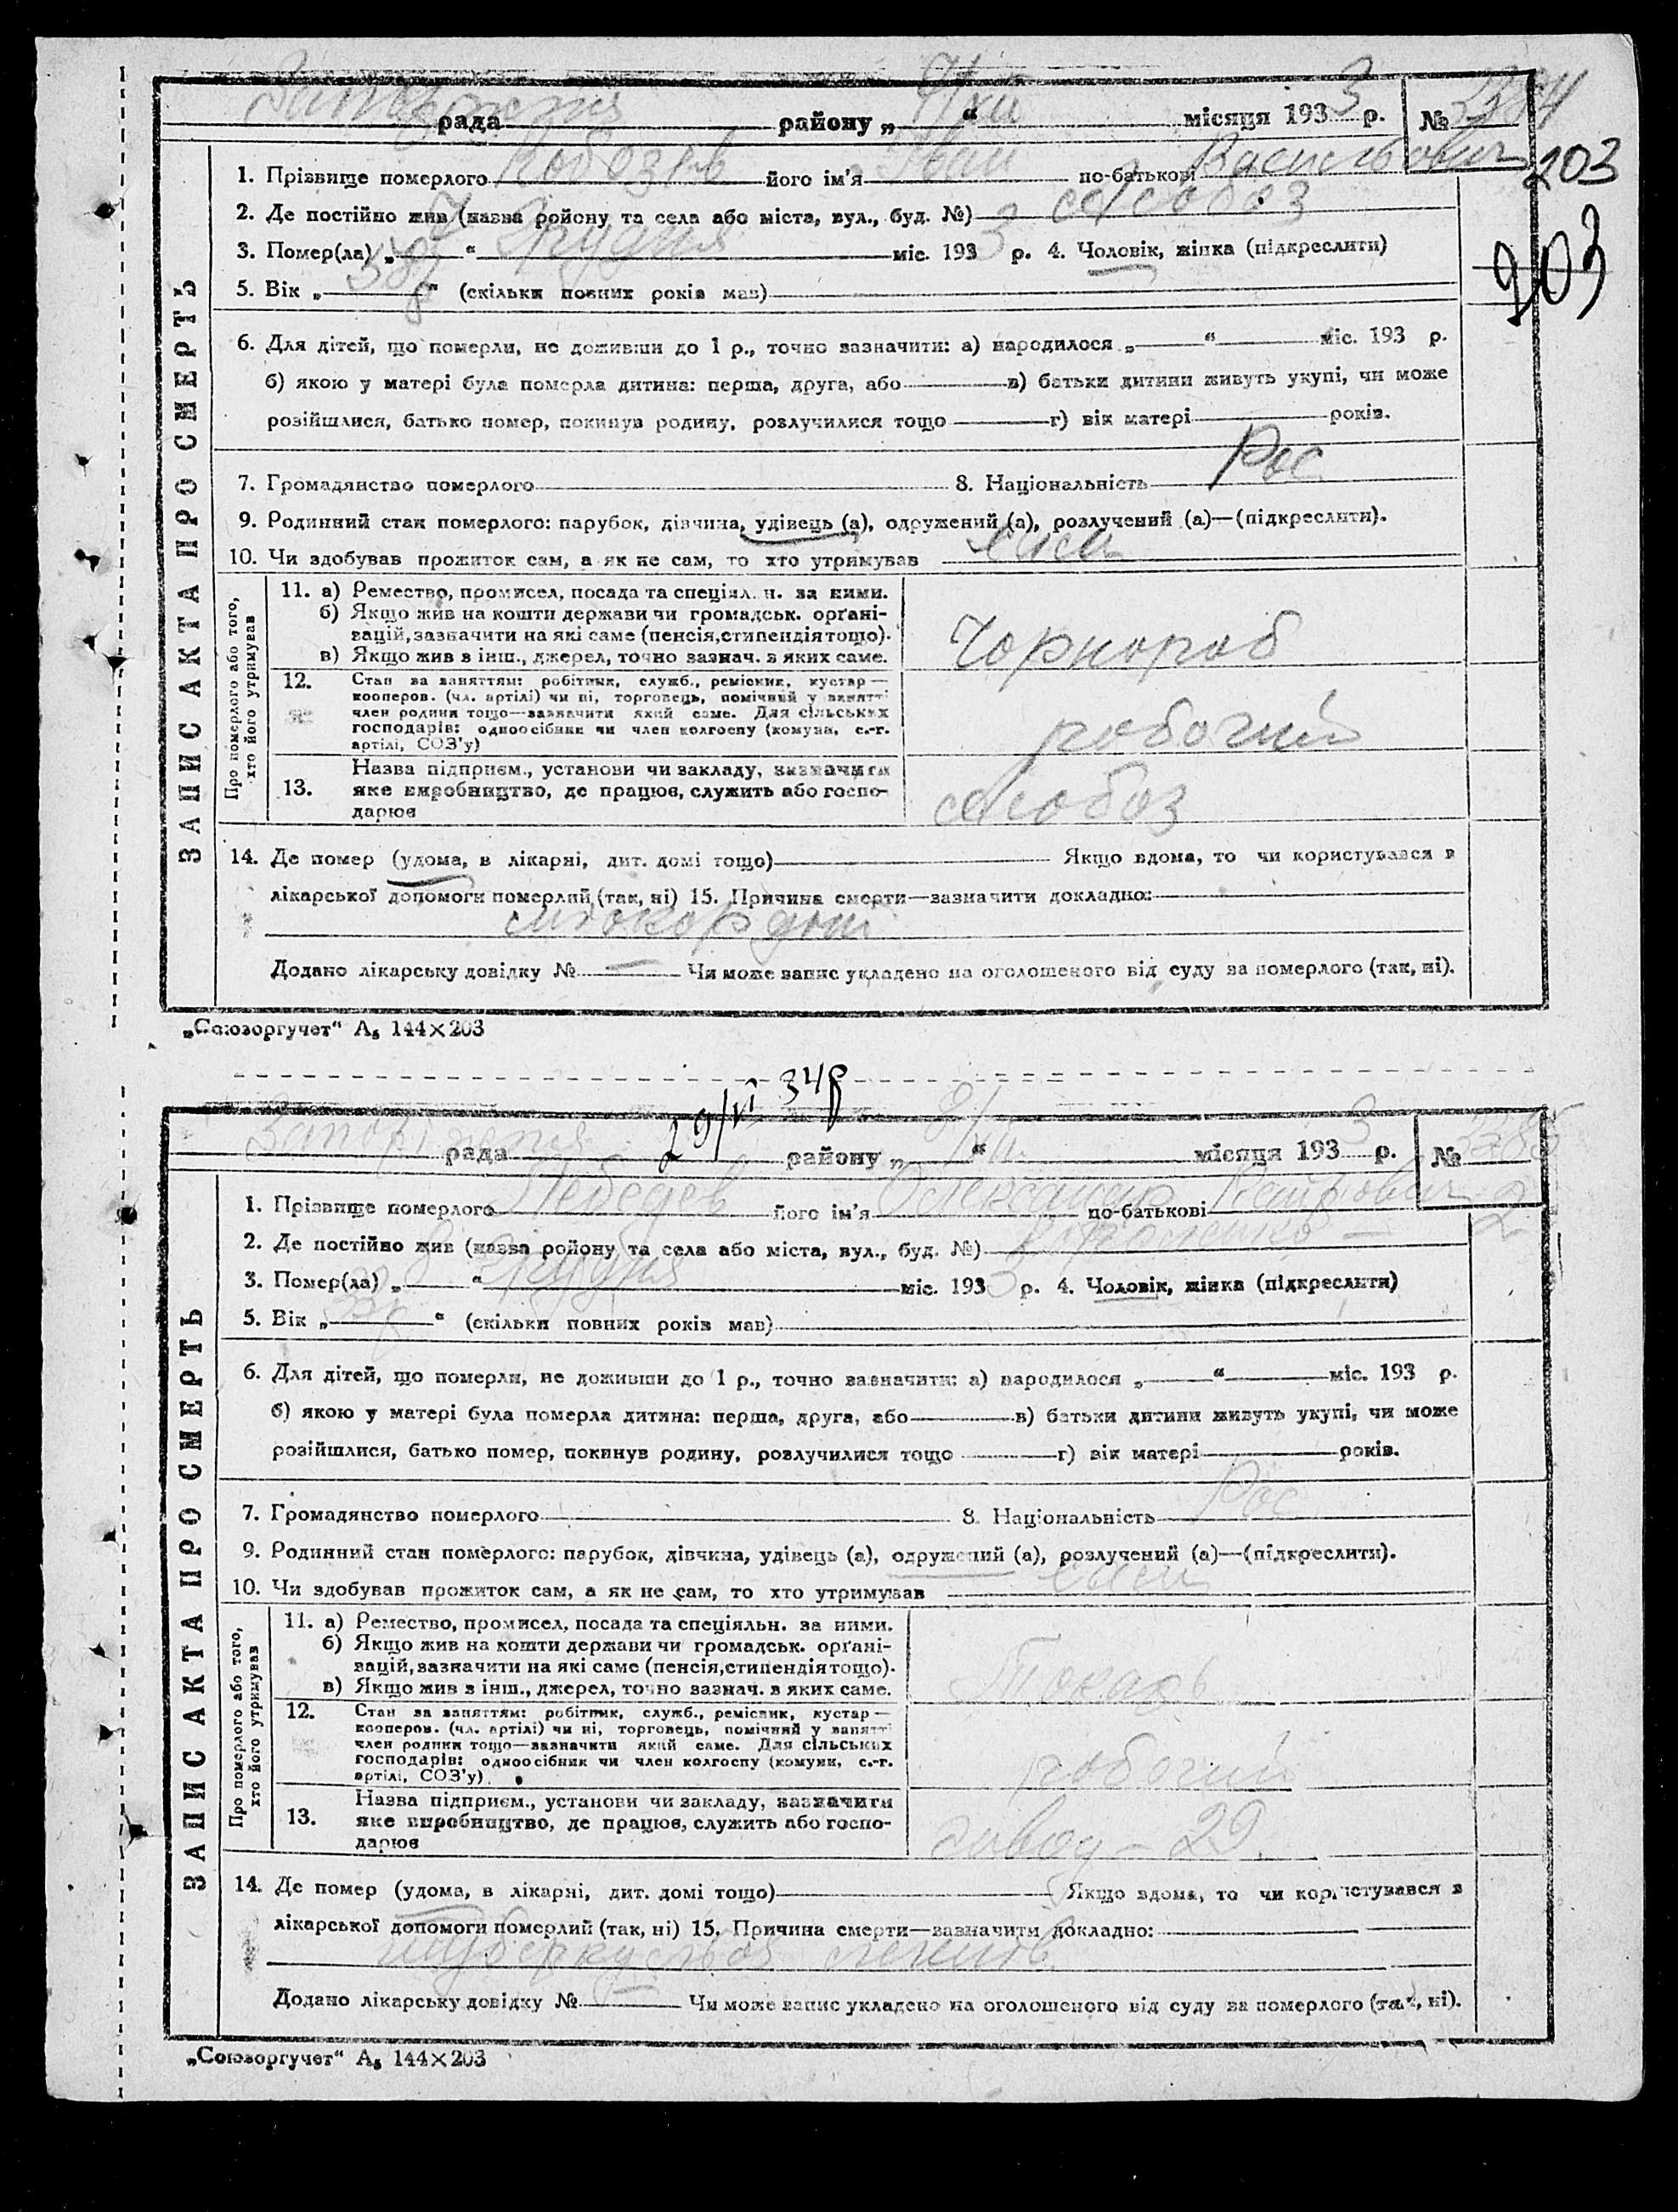 рада району „ “ місяця 1933 р. № 3384
203
1. Прізвище померлого його ім'я Іван по-батькові Васильович
2. Де постійно жив (назва ройону та села або міста, вул., буд. №)
3. Помер(ла) „7“ Грудня міс. 1933 р. 4. Чоловік, жінка (підкреслити)
203
5. Вік „58р“ (скільки повних років мав)
6. Для дітей, що померли, не доживши до 1 р., точно зазначити: а) народилося „ “ міс. 193 р.
б) якою у матері була померла дитина: перша, друга, або в) батьки дитини живуть укупі, чи може
розійшлися, батько помер, покинув родину, розлучилися тощо г) вік матері років.
7. Громадянство померлого 8. Національність Рос
9. Родинний стан померлого: парубок, дівчина, удівець (а), одружений (а), розлучений (а)—(підкреслити).
10. Чи здобував прожиток сам, а як не сам, то хто утримував сам
ЗАПИС АКТА ПРО СМЕРТЬ
Про померлого або того,
хто його утримував
11. а) Ремество, промисел, посада та спеціял. н. за ними.
б) Якщо жив на кошти держави чи громадськ. орґані-
зацій, зазначити на які саме (пенсія, стипендія тощо).
в) Якщо жив з інш., джерел, точно зазнач. з яких саме.
Чорнороб
12. Стан за заняттям: робітник, служб., ремісник, кустар—
кооперов. (чл. артілі) чи ні, торговець, помічний у занятті
член родини тощо—зазначити який саме. Для сільських
господарів: одноосібник чи член колгоспу (комуни, с.-г.
артілі, СОЗ'у)
робочий
13. Назва підприєм., установи чи закладу, зазначити
яке виробництво, де працює, служить або госпо-
дарює
14. Де помер (удома, в лікарні, дит. домі тощо) Якщо вдома, то чи користувався з
лікарської допомоги померлий (так, ні) 15. Причина смерти—зазначити докладно:
Додано лікарську довідку № — Чи може запис укладено на оголошеного від суду за померлого (так, ні).
„Союзоргучет“ А₅ 144×203
29/VI 34р
рада району „ “ місяця 1933 р. № 3385
1. Прізвище померлого Лебедев його ім'я Олександр по-батькові Петрович
2. Де постійно жив (назва ройону та села або міста, вул., буд. №)
3. Помер(ла) „ “ Грудня міс. 1933 р. 4. Чоловік, жінка (підкреслити)
5. Вік „ “ (скільки повних років мав)
6. Для дітей, що померли, не доживши до 1 р., точно зазначити: а) народилося „ “ міс. 193 р.
б) якою у матері була померла дитина: перша, друга, або в) батьки дитини живуть укупі, чи може
розійшлися, батько помер, покинув родину, розлучилися тощо г) вік матері років.
7. Громадянство померлого 8. Національність Рос
9. Родинний стан померлого: парубок, дівчина, удівець (а), одружений (а), розлучений (а)—(підкреслити).
10. Чи здобував прожиток сам, а як не сам, то хто утримував сам
ЗАПИС АКТА ПРО СМЕРТЬ
Про померлого або того,
хто його утримував
11. а) Ремество, промисел, посада та спеціяльн. за ними.
б) Якщо жив на кошти держави чи громадськ. орґані-
зацій, зазначити на які саме (пенсія, стипендія тощо).
в) Якщо жив з інш., джерел, точно зазнач. з яких саме.
Токарь
12. Стан за заняттям: робітник, служб., реміспик, кустар—
кооперов. (чл. артілі) чи ні, торговець, помічний у занятті
член родини тощо—зазначити який саме. Для сільських
господарів: одноосібник чи член колгоспу (комуни, с.-г.
артілі, СОЗ'у)
робочий
13. Назва підприєм., установи чи закладу, зазначити
яке виробництво, де працює, служить або госпо-
дарює
завод – 29.
14. Де помер (удома, в лікарні, дит. домі тощо) Якщо вдома, то чи користувався з
лікарської допомоги померлий (так, ні) 15. Причина смерти—зазначити докладно:
туберкульоз легенів
Додано лікарську довідку № — Чи може запис укладено на оголошеного від суду за померлого (так, ні).
„Союзоргучет“ А₅ 144×203